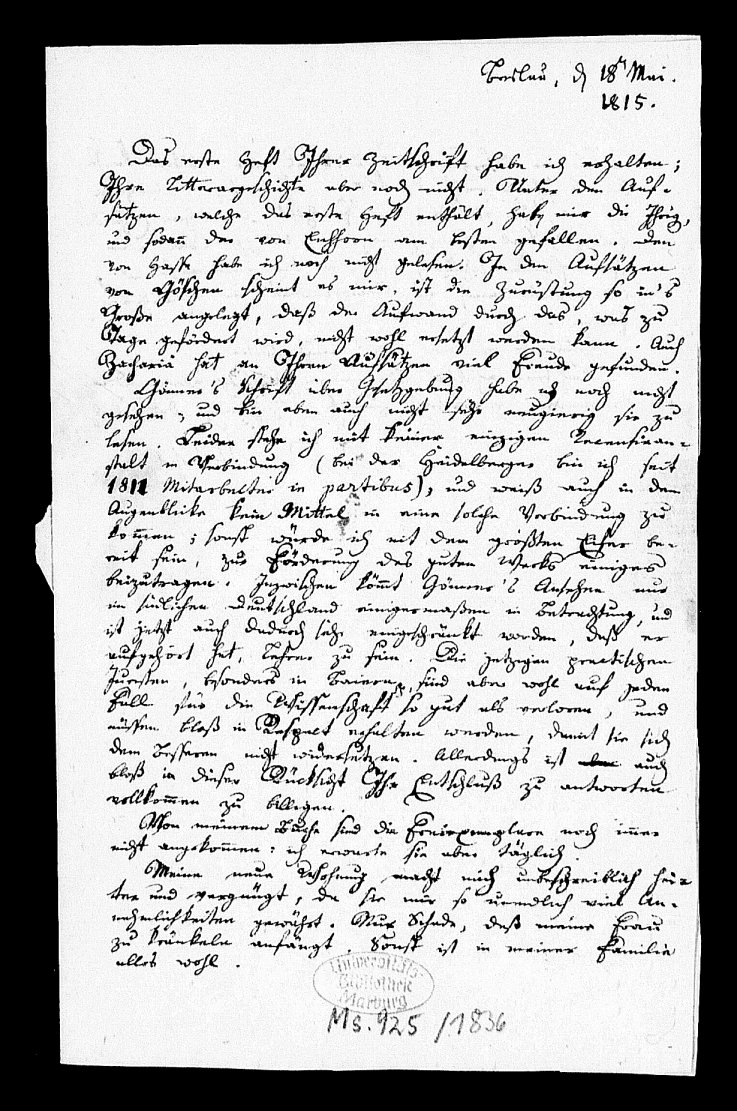 Breslau, d 18n Mai.
1815.
Das erste Heft Ihrer Zeitschrift habe ich erhalten;
Ihre Litterargeschichte aber noch nicht. Unter den Auf-
sätzen, welche das erste Heft enthält, haben mir die Ihrigen,
und sodann der von Eichhorn am besten gefallen. Den
von Hasse habe ich noch nicht gelesen. In den Aufsätzen
von Göschen scheint es mir, ist die Zurüstung so in's
Große angelegt, daß der Aufwand durch das, was zu
Tage gefördert wird, nicht wohl ersetzt werden kann. Auch
Zachariä hat an Ihren Aufsätzen viel Freude gefunden.
Gönner's Schrift über Gesetzgebung habe ich noch nicht
gesehen; und bin eben auch nicht sehr neugierig sie zu
lesen. Leider stehe ich mit keiner einzigen Recensiran-
stalt in Verbindung (bei der Heidelberger bin ich seit
1811 Mitarbeiter in partibus); und weiß auch in dem
Augenblicke kein Mittel in eine solche Verbindung zu
kommen; sonst würde ich mit dem größten Eifer be-
reit sein, zur Förderung des guten Werks einiges
beizutragen. Inzwischen kömmt Gönner's Ansehen nur
im südlichen Deutschland einigermasßen in Betrachtung, und
ist jetzt auch dadurch sehr eingeschränkt worden, daß er
aufgehört hat, Lehrer zu sein. Die jetzigen practischen
Juristen, besonders in Baiern, sind aber wohl auf jeden
Fall für die Wissenschaft so gut als verloren, und
müssen bloß in Respect erhalten werden, damit sie sich
dem besseren nicht widersetzen. Allerdings ist auch
bloß in dieser Rücksicht Ihr Entschluß zu antworten
vollkommen zu billigen.
Von meinem Buche sind die Freiexemplare noch immer
nicht angekommen: ich erwarte sie aber täglich.
Meine neue Wohnung macht mich unbeschreiblich hei-
ter und vergnügt, da sie mir so unendlich viel An-
nehmlichkeiten gewährt. Nur Schade, daß meine Frau
zu kränkeln anfängt. Sonst ist in meiner Familie
alles wohl.
Universitäts-
Bibliothek
Marburg
Ms. 925 /1836